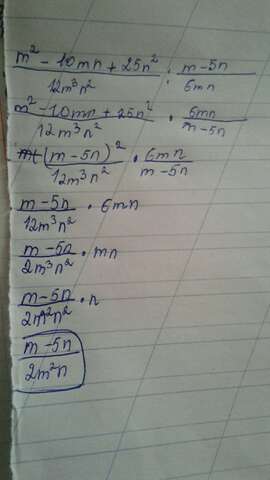 m² - 10mn + 25n² / 12m³n² : m-5n / 6mn
m² - 10mn + 25n² / 12m³n² · 6mn / m-5n
(m-5n)² / 12m³n² · 6mn / m-5n
m-5n / 12m³n² · 6mn
m-5n / 2m³n² · mn
m-5n / 2m²n² · n
m-5n / 2m²n